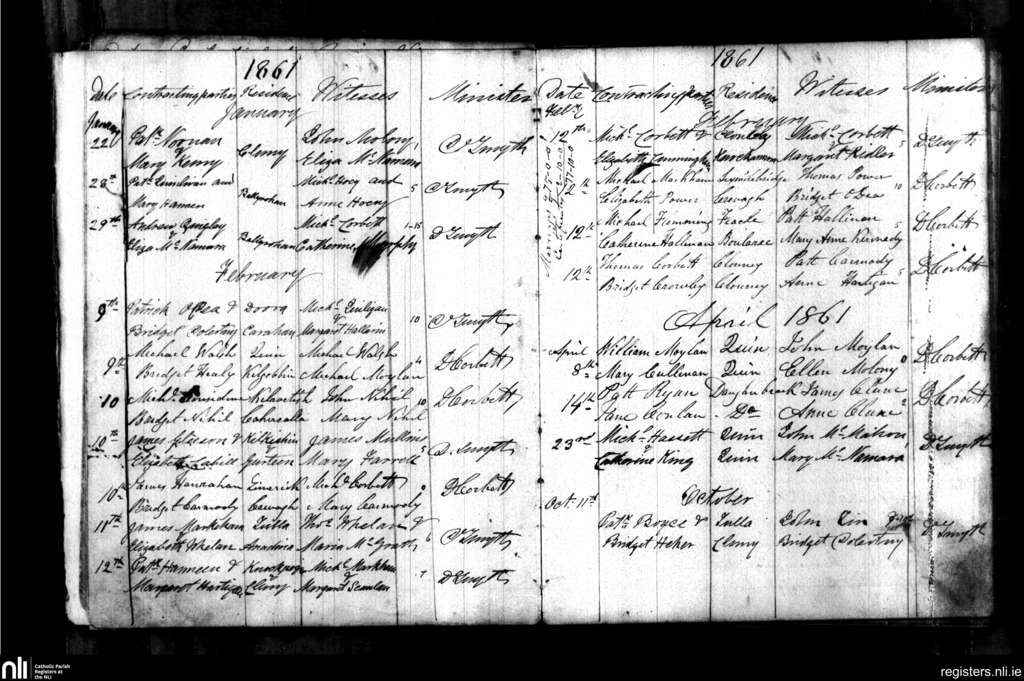 1861
Date Contracting parties Residence Witnesses Minister
January
January
22d Patk Noonan Clonny John Molony
Mary Kenny Eliza McNamara Smyth
28th Patk Quinlivan and Ballyrohan Michl Hoey and 5 Smyth
Mary Hannen Anne Hoey
29th Andrew Quigley Michl Corbett 15 D Smyth
Eliza McNamara Catherine Murphy
February
9th Patrick O'Dea & Doora Michl Quiligan
Bridget Dolertny Carahan Margaret Hallorin 10 Smyth
Michael Walsh Quin Michael Walsh
9th Bridget Healy Michael Moylan D Corbett
10 John Nihil 10 D Corbett
Bridget Nihil Mary Nihil
10th James Gleeson & James Mullins
Elizabeth Cahill Gurteen Mary Farrell 5 D. Smyth
James Hanrahan Limerick Michl Corbett
10th Bridget Carmody Mary Carmody D Corbett
11th James Markham Tulla Thos Whelan &
Elizabeth Whelan Maria McGrath 6 Smyth
12th Patk Hanneen & Michl Markham
Margaret Clonny Margaret Scanlan D Smyth
1861
Date Contracting parties Residence Witnesses Minister
Feby
February
12th Michl Corbett & Clonley Michl Corbett D Smyth
Elizabeth Cunningham Margaret Ridler
Michael Markham Sixmilebridge Thomas Power 10 D Corbett
12th Elizabeth Power Bridget O'Dea
Michael Flemming Feacle Patt Hallinan 5 D Corbett
12th Catherine Hallinan Mary Anne Kennedy
Thomas Corbett Clouney Patt Carmody D Corbett
12th Bridget Crowley Clouney Anne Hartigan 5
April 1861
April William Moylan Quin John Moylan
8th Mary Cullinan Quin Ellen Molony 0 D Corbett
14th Patt Ryan Danganbrack James Clune
Jane Conlan Do Anne Clune 2 D Corbett
23rd Michl Hassett Quin John McMahon
Catherine King Quin Mary McNamara D Smyth
October
Oct. 11th
Patk Boyce & Tulla John
Bridget Heher Clonny Bridget Dolertny D Smyth
nli Catholic Parish
Registers at
the NLI
registers.nli.ie